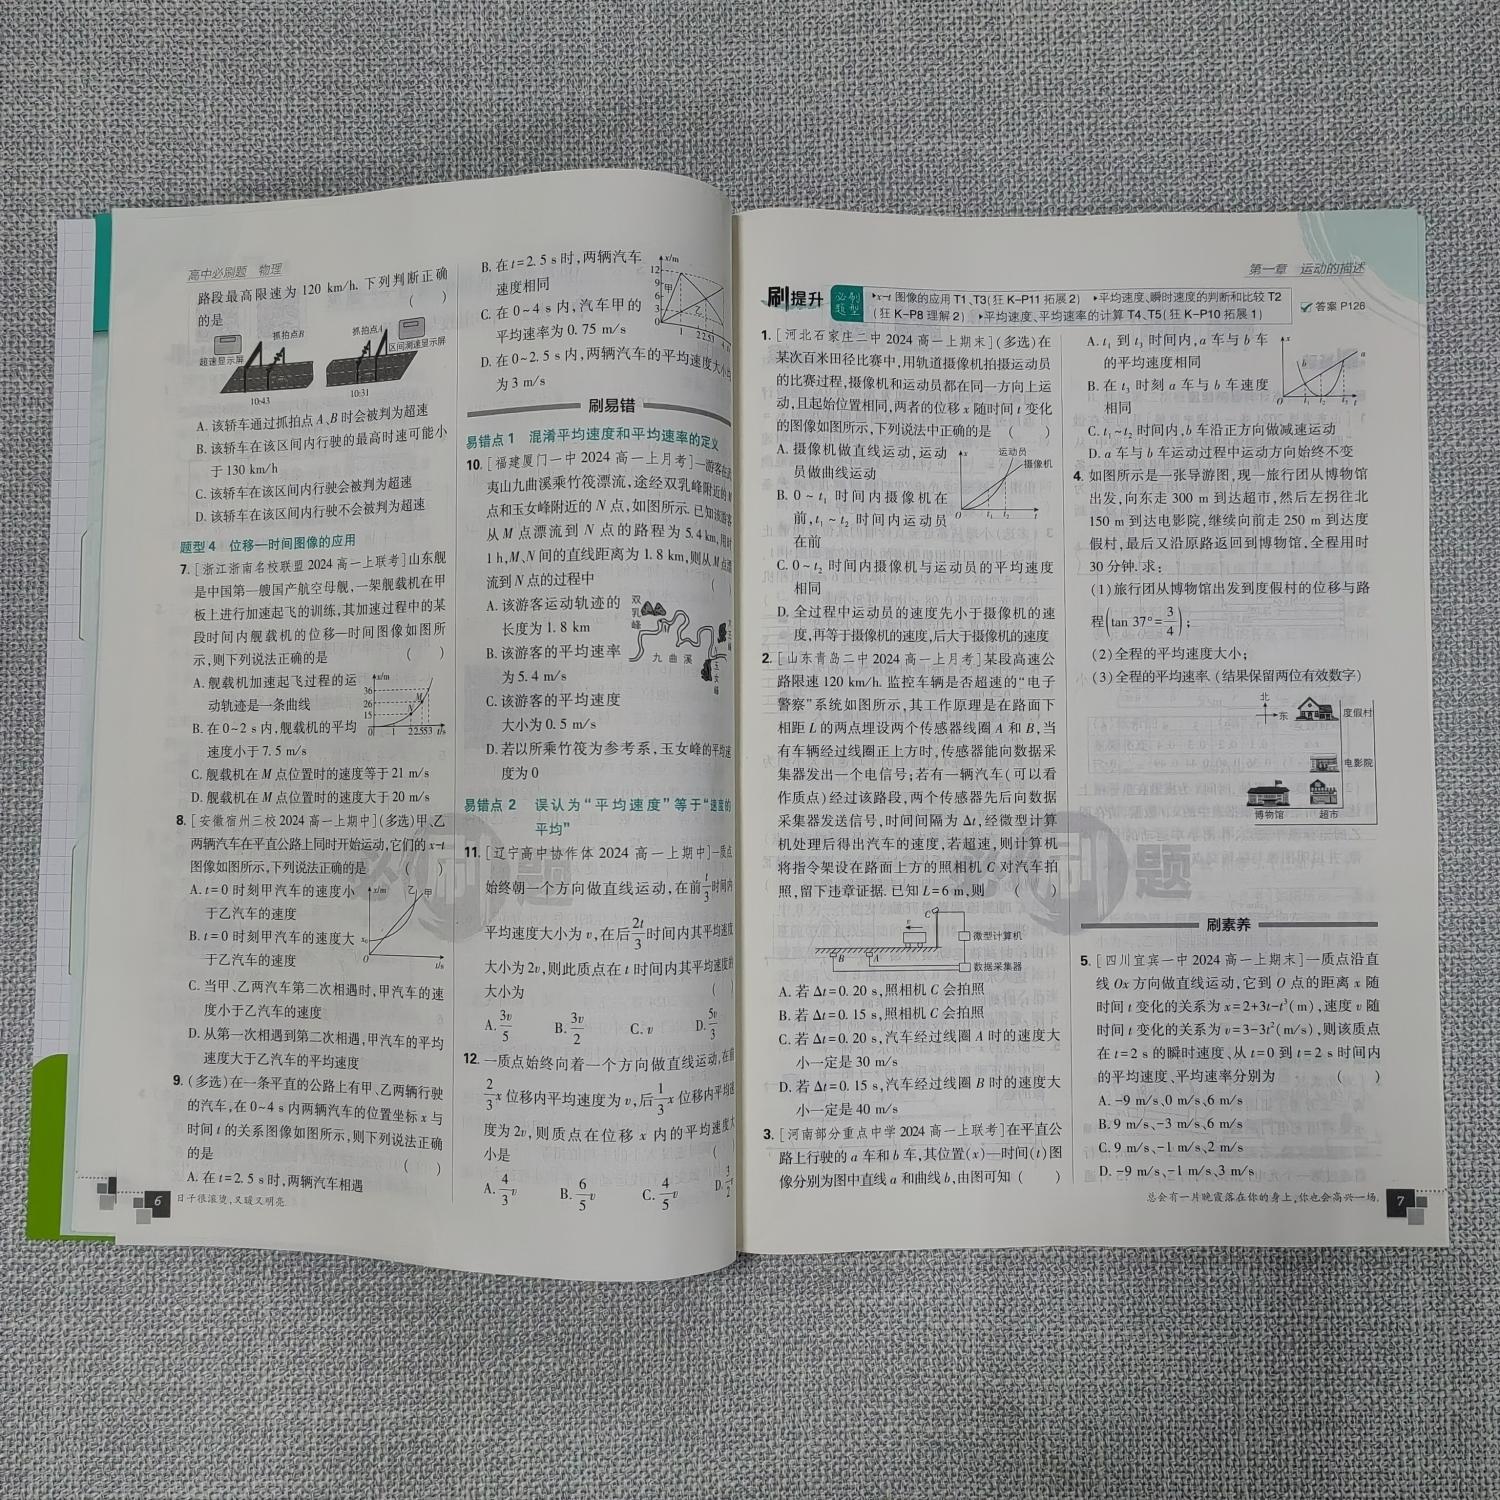 高中必刷题 物理
路段最高限速为 120 km/h. 下列判断正确
的是 ( )
抓拍点B
抓拍点A
超速显示屏
区间测速显示屏
10:43
10:31
A. 该轿车通过抓拍点 A、B 时会被判为超速
B. 该轿车在该区间内行驶的最高时速可能小
于 130 km/h
C. 该轿车在该区间内行驶会被判为超速
D. 该轿车在该区间内行驶不会被判为超速
题型 4 位移—时间图像的应用
7. [浙江浙南名校联盟 2024 高一上联考]山东舰
是中国第一艘国产航空母舰,一架舰载机在甲
板上进行加速起飞的训练,其加速过程中的某
段时间内舰载机的位移—时间图像如图所
示,则下列说法正确的是 ( )
A. 舰载机加速起飞过程的运
动轨迹是一条曲线
B. 在 0~2 s 内,舰载机的平均
速度小于 7.5 m/s
C. 舰载机在 M 点位置时的速度等于 21 m/s
D. 舰载机在 M 点位置时的速度大于 20 m/s
x/m
36
26
15
M
0 1 2 2.55 3 t/s
8. [安徽宿州三校 2024 高一上期中](多选)甲、乙
两辆汽车在平直公路上同时开始运动,它们的 x-t
图像如图所示,下列说法正确的是 ( )
A. t=0 时刻甲汽车的速度小
于乙汽车的速度
B. t=0 时刻甲汽车的速度大
于乙汽车的速度
C. 当甲、乙两汽车第二次相遇时,甲汽车的速
度小于乙汽车的速度
D. 从第一次相遇到第二次相遇,甲汽车的平均
速度大于乙汽车的平均速度
x/m
乙 甲
x₀
O
t/s
9. (多选)在一条平直的公路上有甲、乙两辆行驶
的汽车,在 0~4 s 内两辆汽车的位置坐标 x 与
时间 t 的关系图像如图所示,则下列说法正确
的是 ( )
A. 在 t=2.5 s 时,两辆汽车相遇
6
日子很滚烫,又暖又明亮.
B. 在 t=2.5 s 时,两辆汽车
速度相同
C. 在 0~4 s 内,汽车甲的
平均速率为 0.75 m/s
D. 在 0~2.5 s 内,两辆汽车的平均速度大小均
为 3 m/s
x/m
12
9
甲
6
3
0
刷易错
易错点 1 混淆平均速度和平均速率的定义
10. [福建厦门一中 2024 高一上月考]一游客在武
夷山九曲溪乘竹筏漂流,途经双乳峰附近的 M
点和玉女峰附近的 N 点,如图所示. 已知该游客
从 M 点漂流到 N 点的路程为 5.4 km,用时
1 h,M、N 间的直线距离为 1.8 km,则从 M 点漂
流到 N 点的过程中 (
A. 该游客运动轨迹的
长度为 1.8 km
B. 该游客的平均速率
为 5.4 m/s
C. 该游客的平均速度
大小为 0.5 m/s
D. 若以所乘竹筏为参考系,玉女峰的平均速
度为 0
双乳峰
九曲溪
玉女峰
易错点 2 误认为“平均速度”等于“速度的
平均”
11. [辽宁高中协作体 2024 高一上期中]一质点
始终朝一个方向做直线运动,在前 t/3 时间内
平均速度大小为 v,在后 2t/3 时间内其平均速度
大小为 2v,则此质点在 t 时间内其平均速度的
大小为 (
A. 3v/5 B. 3v/2 C. v D. 5v/3
12. 一质点始终向着一个方向做直线运动,在前
2/3 x 位移内平均速度为 v,后 1/3 x 位移内平均速
度为 2v,则质点在位移 x 内的平均速度大
小是 (
A. 4/3 v B. 6/5 v C. 4/5 v D. 3/2
必刷题
第一章 运动的描述
刷提升
必刷题型
x-t 图像的应用 T1、T3(狂 K-P11 拓展 2) 平均速度、瞬时速度的判断和比较 T2
(狂 K-P8 理解 2) 平均速度、平均速率的计算 T4、T5(狂 K-P10 拓展 1)
答案 P126
1. [河北石家庄二中 2024 高一上期末](多选)在
某次百米田径比赛中,用轨道摄像机拍摄运动员
的比赛过程,摄像机和运动员都在同一方向上运
动,且起始位置相同,两者的位移 x 随时间 t 变化
的图像如图所示,下列说法中正确的是 ( )
A. 摄像机做直线运动,运动
员做曲线运动
B. 0~t₁ 时间内摄像机在
前,t₁~t₂ 时间内运动员
在前
C. 0~t₂ 时间内摄像机与运动员的平均速度
相同
D. 全过程中运动员的速度先小于摄像机的速
度,再等于摄像机的速度,后大于摄像机的速度
x
运动员
摄像机
O t₁ t₂ t
2. [山东青岛二中 2024 高一上月考]某段高速公
路限速 120 km/h. 监控车辆是否超速的“电子
警察”系统如图所示,其工作原理是在路面下
相距 L 的两点埋设两个传感器线圈 A 和 B,当
有车辆经过线圈正上方时,传感器能向数据采
集器发出一个电信号;若有一辆汽车(可以看
作质点)经过该路段,两个传感器先后向数据
采集器发送信号,时间间隔为 Δt,经微型计算
机处理后得出汽车的速度,若超速,则计算机
将指令架设在路面上方的照相机 C 对汽车拍
照,留下违章证据. 已知 L=6 m,则 ( )
C
v
微型计算机
B A
数据采集器
A. 若 Δt=0.20 s,照相机 C 会拍照
B. 若 Δt=0.15 s,照相机 C 会拍照
C. 若 Δt=0.20 s,汽车经过线圈 A 时的速度大
小一定是 30 m/s
D. 若 Δt=0.15 s,汽车经过线圈 B 时的速度大
小一定是 40 m/s
3. [河南部分重点中学 2024 高一上联考]在平直公
路上行驶的 a 车和 b 车,其位置(x)—时间(t)图
像分别为图中直线 a 和曲线 b,由图可知 ( )
A. t₁ 到 t₃ 时间内,a 车与 b 车
的平均速度相同
B. 在 t₃ 时刻 a 车与 b 车速度
相同
C. t₁~t₂ 时间内,b 车沿正方向做减速运动
D. a 车与 b 车运动过程中运动方向始终不变
x
b
a
O t₁ t₂ t₃ t
4. 如图所示是一张导游图,现一旅行团从博物馆
出发,向东走 300 m 到达超市,然后左拐往北
150 m 到达电影院,继续向前走 250 m 到达度
假村,最后又沿原路返回到博物馆,全程用时
30 分钟. 求:
(1)旅行团从博物馆出发到度假村的位移与路
程(tan 37°=3/4);
(2)全程的平均速度大小;
(3)全程的平均速率. (结果保留两位有效数字)
北
东
度假村
电影院
博物馆
超市
必刷题
刷素养
5. [四川宜宾一中 2024 高一上期末]一质点沿直
线 Ox 方向做直线运动,它到 O 点的距离 x 随
时间 t 变化的关系为 x=2+3t-t³(m),速度 v 随
时间 t 变化的关系为 v=3-3t²(m/s),则该质点
在 t=2 s 的瞬时速度、从 t=0 到 t=2 s 时间内
的平均速度、平均速率分别为 ( )
A. -9 m/s、0 m/s、6 m/s
B. 9 m/s、-3 m/s、6 m/s
C. 9 m/s、-1 m/s、2 m/s
D. -9 m/s、-1 m/s、3 m/s
总会有一片晚霞落在你的身上,你也会高兴一场.
7